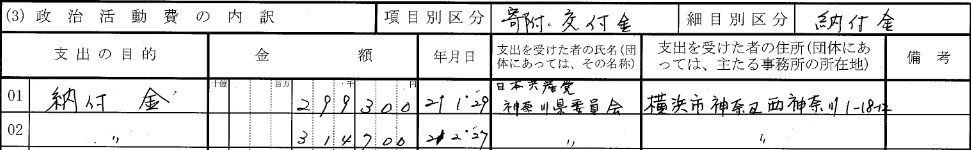 (3) 政治活動費の内訳 項目別区分 寄附・交付金 細目別区分 納付金
支出の目的 金額 年月日 支出を受けた者の氏名(団体にあっては、その名称) 支出を受けた者の住所(団体にあっては、主たる事務所の所在地) 備考
十億 百万 千 円
01 納付金 299300 21・1・29 日本共産党神奈川県委員会 横浜市神奈川区西神奈川1-18-12
02 〃 314700 21・2・27 〃 〃